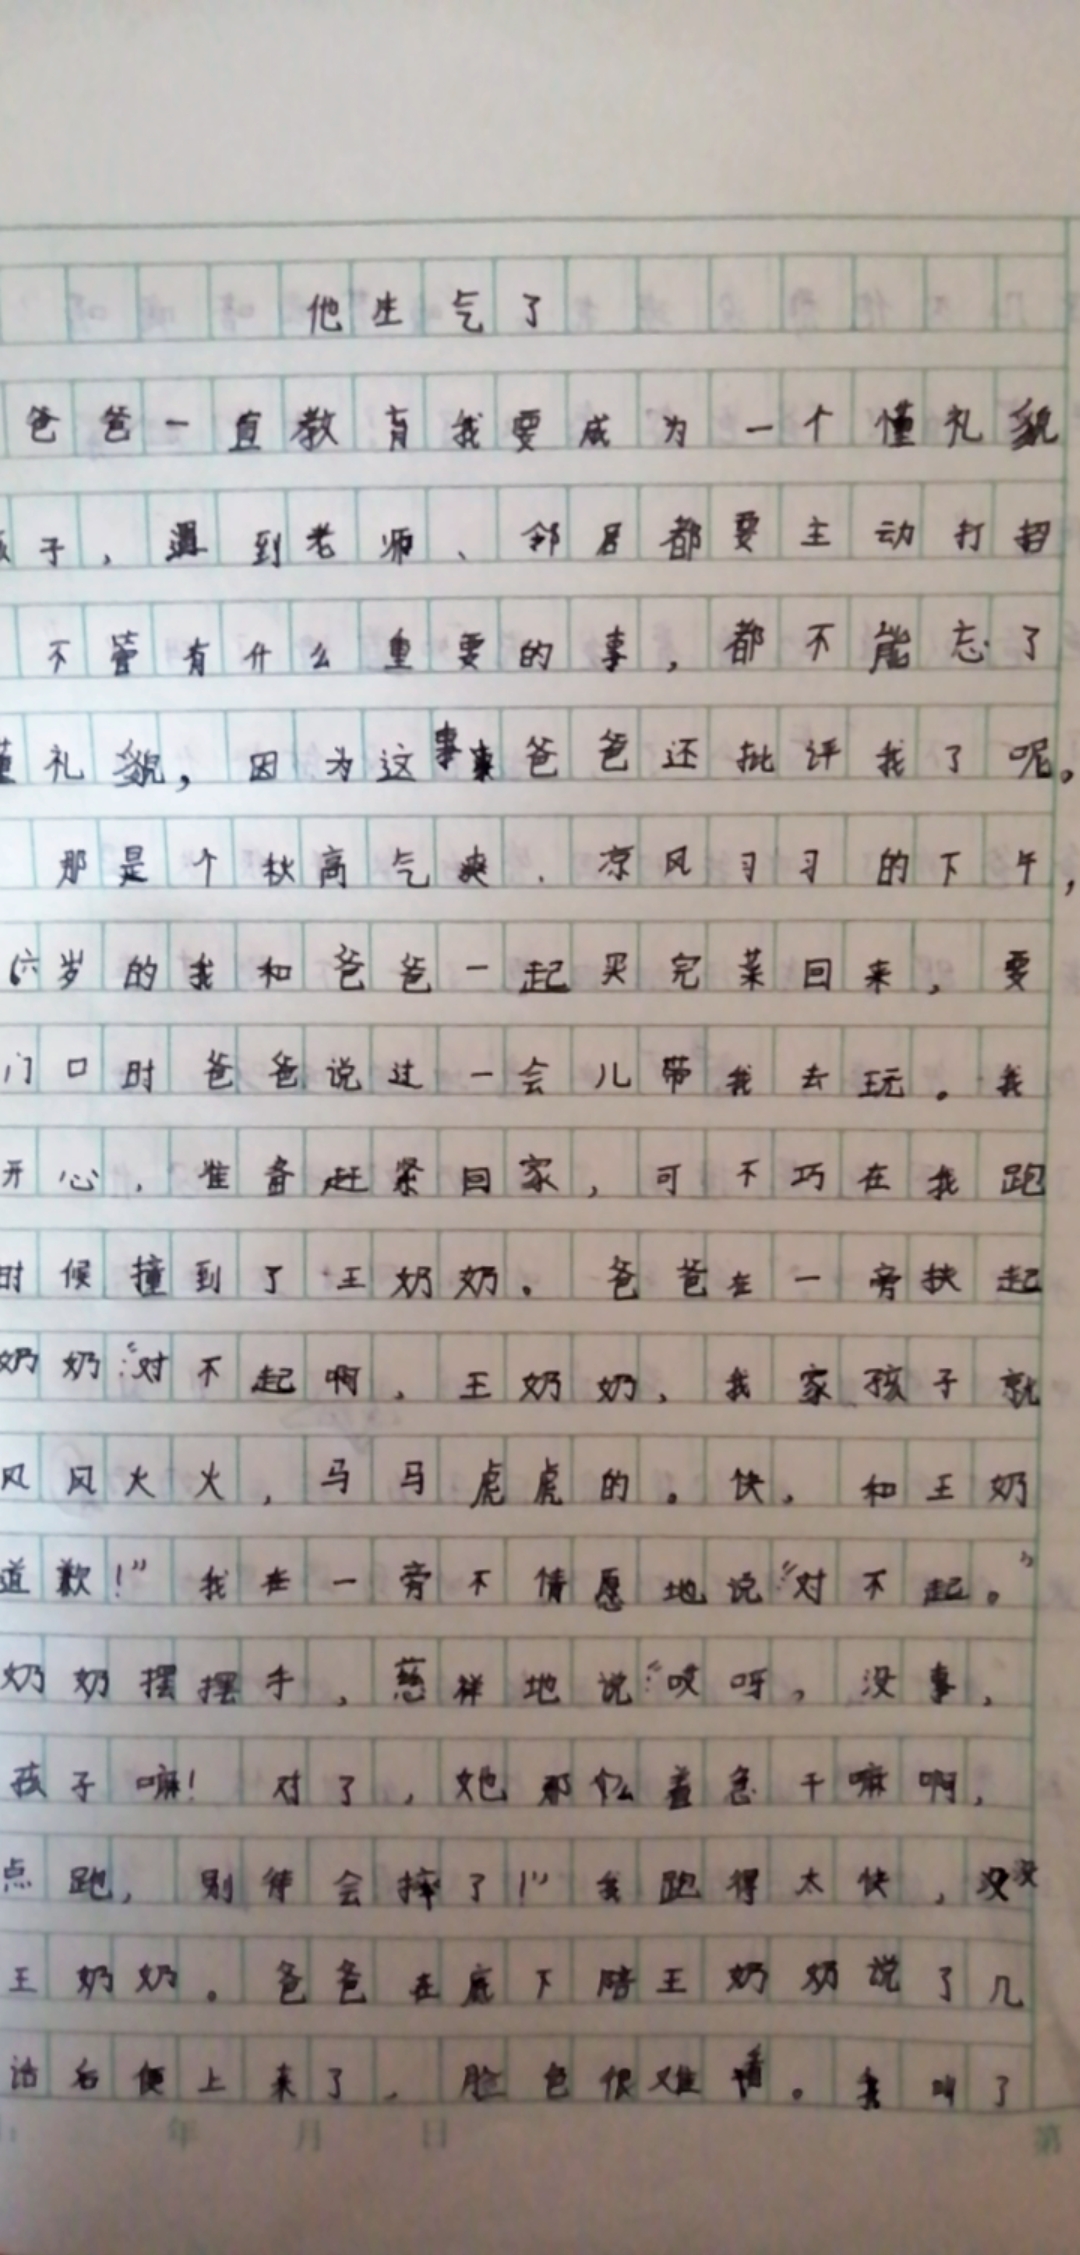 他生气了
爸爸一直教育我要成为一个懂礼貌
孩子，遇到老师、邻居都要主动打招
不管有什么重要的事，都不能忘了
懂礼貌，因为这事爸爸还批评我了呢。
那是个秋高气爽、凉风习习的下午，
六岁的我和爸爸一起买完菜回来，要
门口时爸爸说过一会儿带我去玩。我
开心，准备赶紧回家，可不巧在我跑
时候撞到了王奶奶。爸爸在一旁扶起
奶奶:“对不起啊，王奶奶，我家孩子就
风风火火，马马虎虎的。快，和王奶
道歉！”我在一旁不情愿地说:“对不起。”
奶奶摆摆手，慈祥地说:“哎呀，没事，
孩子嘛！对了，她那么着急干嘛啊，
点跑，别等会摔了！”我跑得太快，没
王奶奶。爸爸在底下陪王奶奶说了几
话后便上来了，脸色很难看。我叫了
年 月 日 第